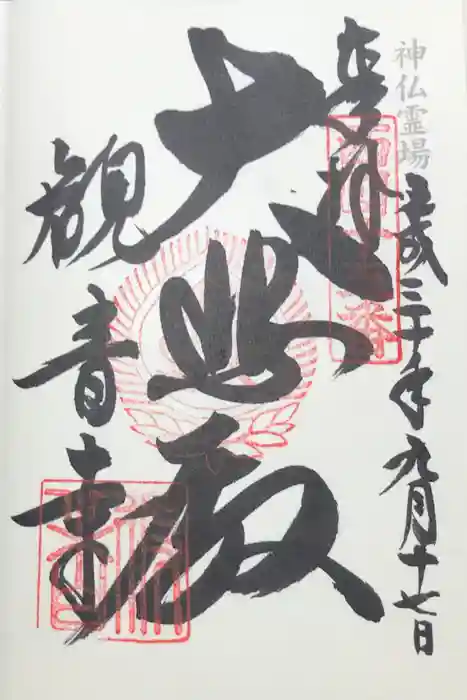 神仏霊場
平成三十年九月十七日
奉拝
西国十五番
大悲殿
観音寺